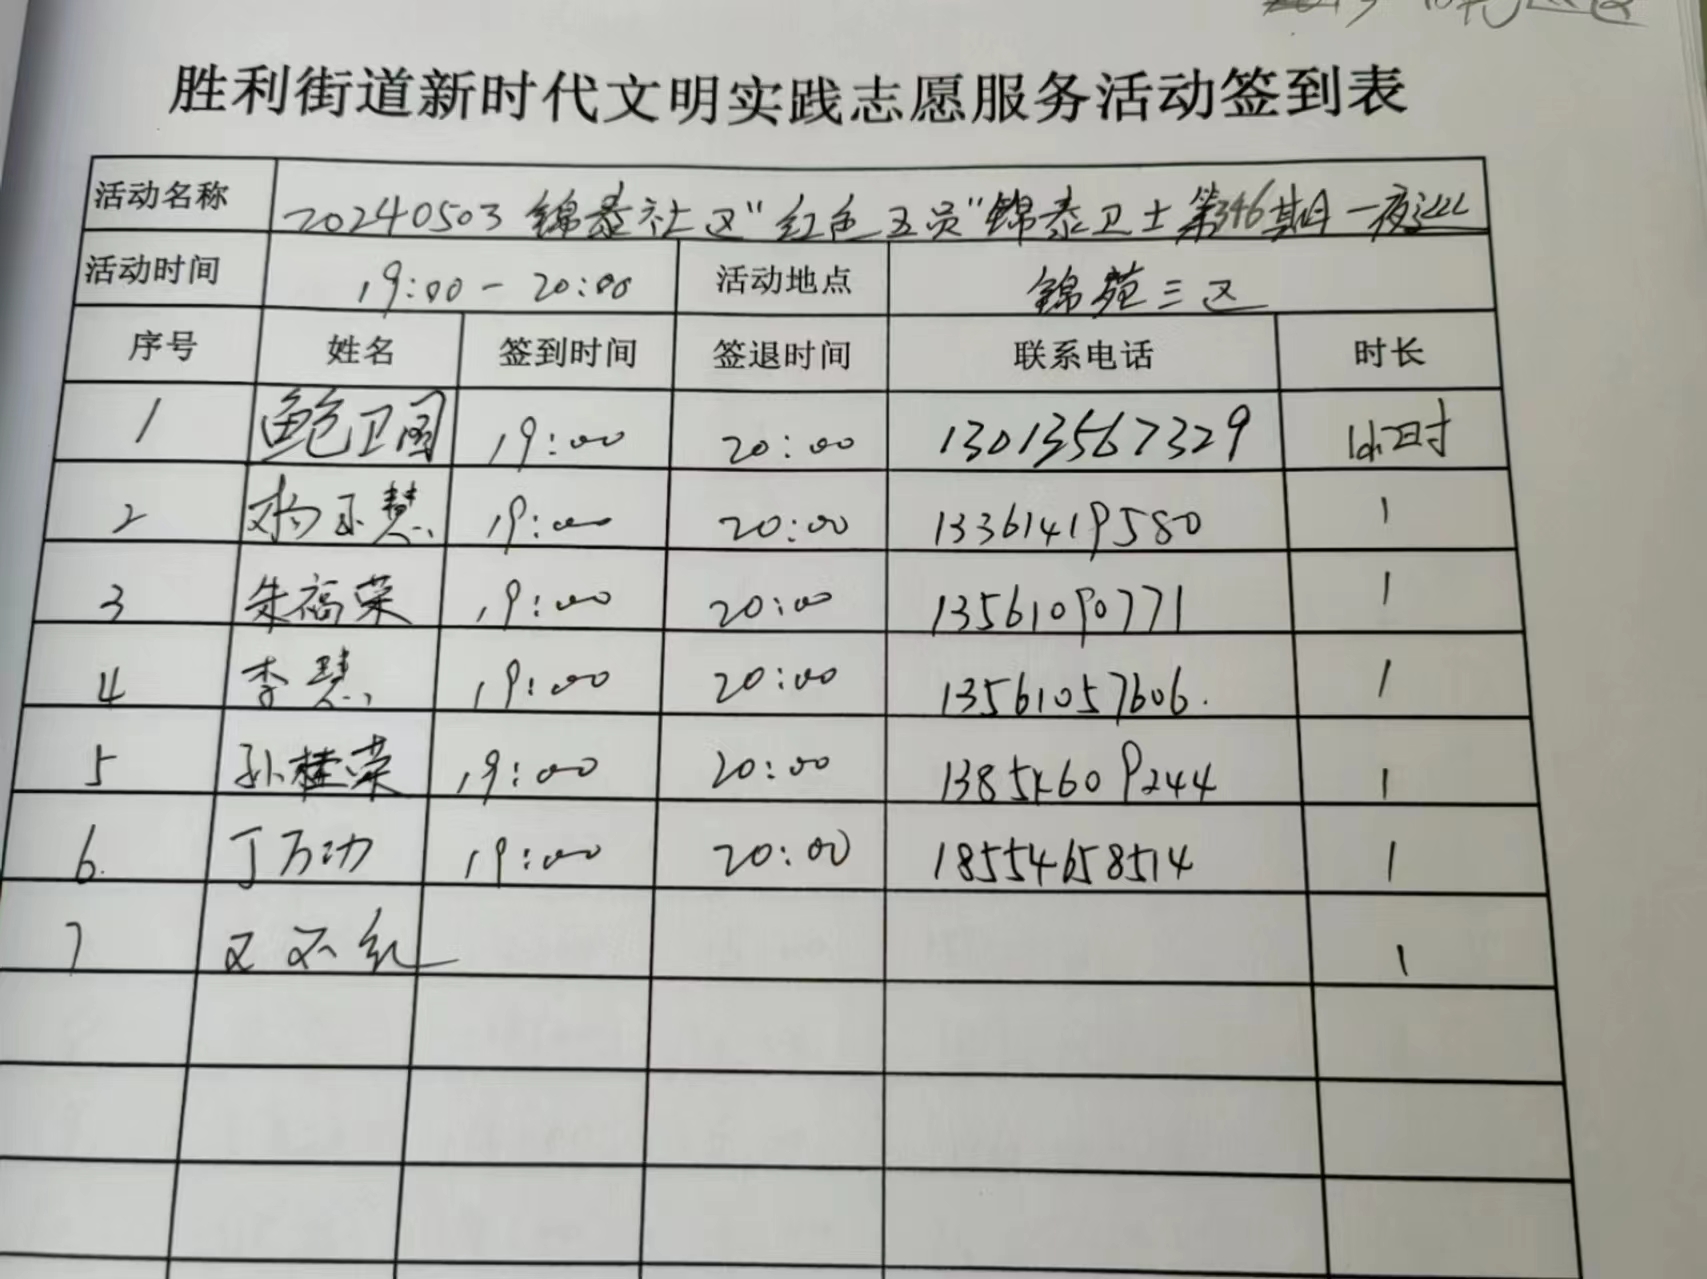 胜利街道新时代文明实践志愿服务活动签到表
活动名称 20240503 锦泰社区"红色五员"锦泰卫士第346期 一夜巡
活动时间 19:00-20:00 活动地点 锦苑三区
序号 姓名 签到时间 签退时间 联系电话 时长
1 鲍卫国 19:00 20:00 13013567329 1小时
2 杨玉慧 19:00 20:00 13361419580 1
3 朱福荣 19:00 20:00 13561090771 1
4 李慧 19:00 20:00 13561057606. 1
5 孙桂荣 19:00 20:00 13854609244 1
6. 丁万功 19:00 20:00 18554658514 1
7 1